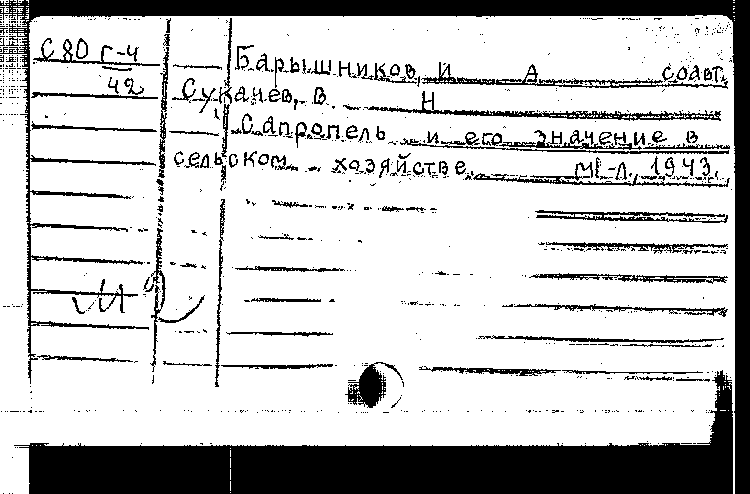 С 80 г-4
42
Барышников, И А соавт.
Сукачев, В. Н
Сапропель и его значение в
сельском хозяйстве. М.-Л., 1943.